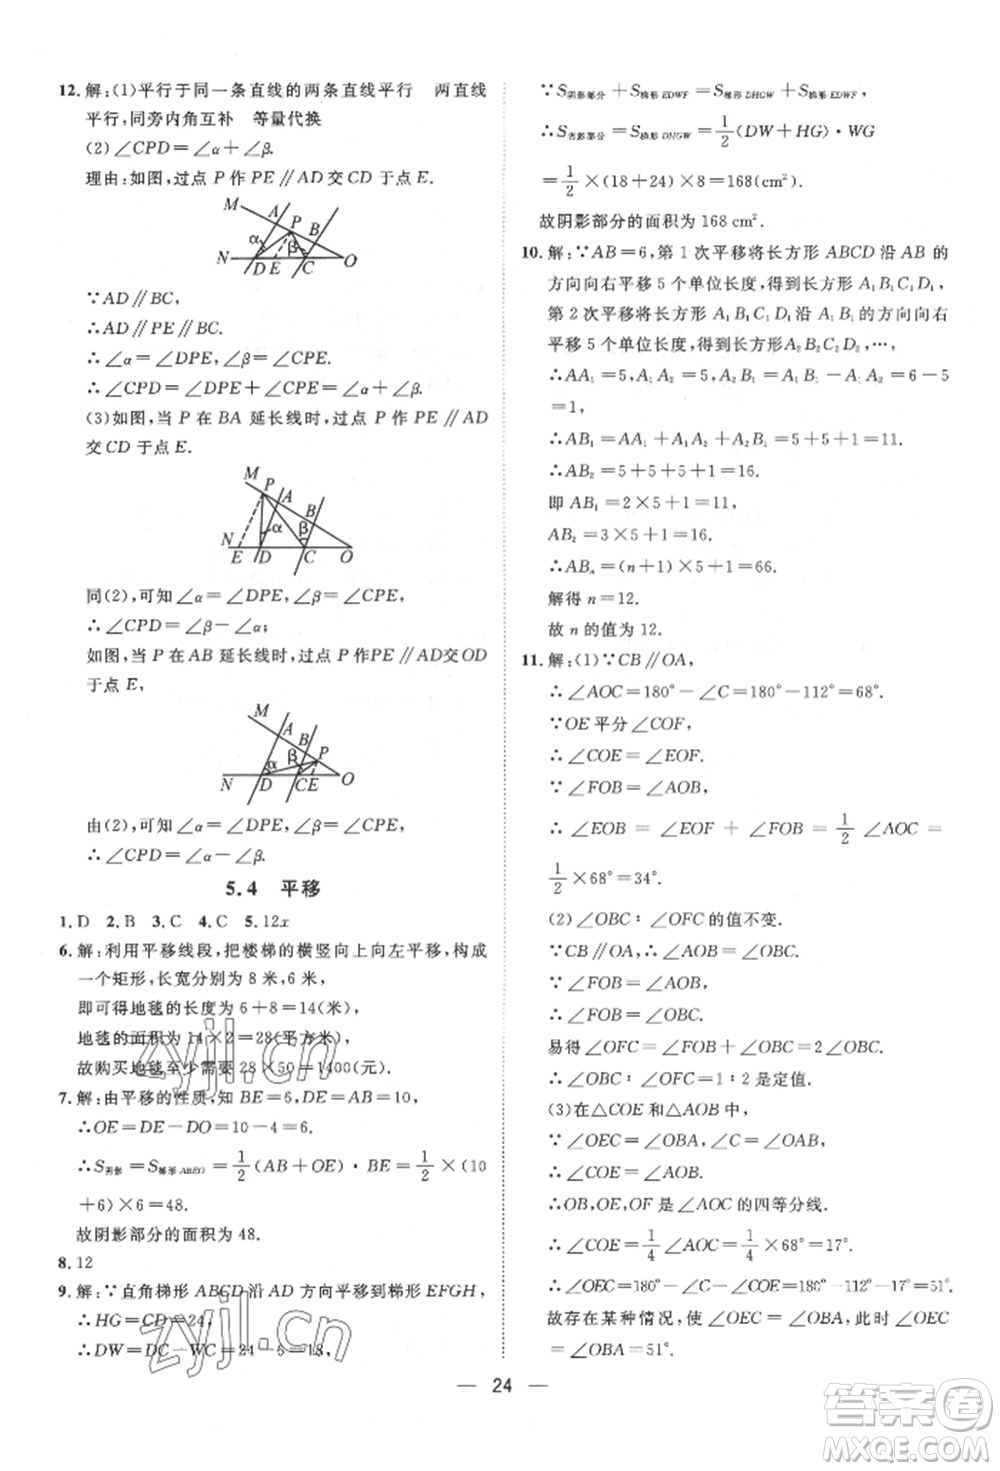 12. 解:(1)平行于同一条直线的两条直线平行　两直线
平行,同旁内角互补　等量代换
(2)∠CPD=∠α+∠β.
理由:如图,过点 P 作 PE∥AD交 CD 于点 E.
M A P B α β N D E C O
∵AD∥BC,
∴AD∥PE∥BC.
∴∠α=∠DPE,∠β=∠CPE.
∴∠CPD=∠DPE+∠CPE=∠α+∠β.
(3)如图,当 P 在 BA 延长线时,过点 P 作 PE∥AD
交 CD 于点 E.
M P A B α β N E D C O
同(2),可知∠α=∠DPE,∠β=∠CPE.
∴∠CPD=∠β-∠α;
如图,当 P 在 AB 延长线时,过点 P 作 PE∥AD交 OD
于点 E,
M A B P α β N D C E O
由(2),可知∠α=∠DPE,∠β=∠CPE.
∴∠CPD=∠α-∠β.
5.4 平移
1. D 2. B 3. C 4. C 5. 12x
6. 解:利用平移线段,把楼梯的横竖向上向左平移,构成
一个矩形,长宽分别为 8 米,6 米.
即可得地毯的长度为 6+8=14(米).
地毯的面积为 14×2=28(平方米).
故购买地毯至少需要 28×50=1400(元).
7. 解:由平移的性质,知 BE=6,DE=AB=10,
∴OE=DE-DO=10-4=6.
∴S阴影=S梯形ABEO=1/2(AB+OE)·BE=1/2×(10
+6)×6=48.
故阴影部分的面积为 48.
8. 12
9. 解:∵直角梯形 ABCD沿 AD 方向平移到梯形 EFGH,
∴HG=CD=24,
∴DW=DC-WC=24-6=18,
∵S阴影部分+S梯形EDWF=S梯形DHGW+S梯形EDWF,
∴S阴影部分=S梯形DHGW=1/2(DW+HG)·WG
=1/2×(18+24)×8=168(cm²).
故阴影部分的面积为 168 cm².
10. 解:∵AB=6,第 1 次平移将长方形 ABCD 沿 AB 的
方向向右平移 5 个单位长度,得到长方形 A₁B₁C₁D₁,
第 2 次平移将长方形 A₁B₁C₁D₁沿 A₁B₁的方向向右
平移 5 个单位长度,得到长方形 A₂B₂C₂D₂,…,
∴AA₁=5,A₁A₂=5,A₂B₁=A₁B₁-A₁A₂=6-5
=1,
∴AB₁=AA₁+A₁A₂+A₂B₁=5+5+1=11.
∴AB₂=5+5+5+1=16.
即 AB₁=2×5+1=11,
AB₂=3×5+1=16.
∴ABₙ=(n+1)×5+1=66.
解得 n=12.
故 n 的值为 12.
11. 解:(1)∵CB∥OA,
∴∠AOC=180°-∠C=180°-112°=68°.
∵OE平分∠COF,
∴∠COE=∠EOF.
∵∠FOB=∠AOB,
∴∠EOB=∠EOF+∠FOB=1/2∠AOC=
1/2×68°=34°.
(2)∠OBC∶∠OFC 的值不变.
∵CB∥OA,∴∠OBC=∠AOB.
∵∠FOB=∠AOB,
∴∠FOB=∠OBC.
易得∠OFC=∠FOB+∠OBC=2∠OBC.
∴∠OBC∶∠OFC=1∶2 是定值.
(3)在△COE 和△AOB 中,
∵∠OEC=∠OBA,∠C=∠OAB,
∴∠COE=∠AOB.
∴OB,OE,OF是∠AOC的四等分线.
∴∠COE=1/4∠AOC=1/4×68°=17°.
∴∠OEC=180°-∠C-∠COE=180°-112°-17°=51°.
故存在某种情况,使∠OEC=∠OBA,此时∠OEC
=∠OBA=51°.
— 24 —
zyjl.cn
zyjl.cn
答案卷
MXQE.COM